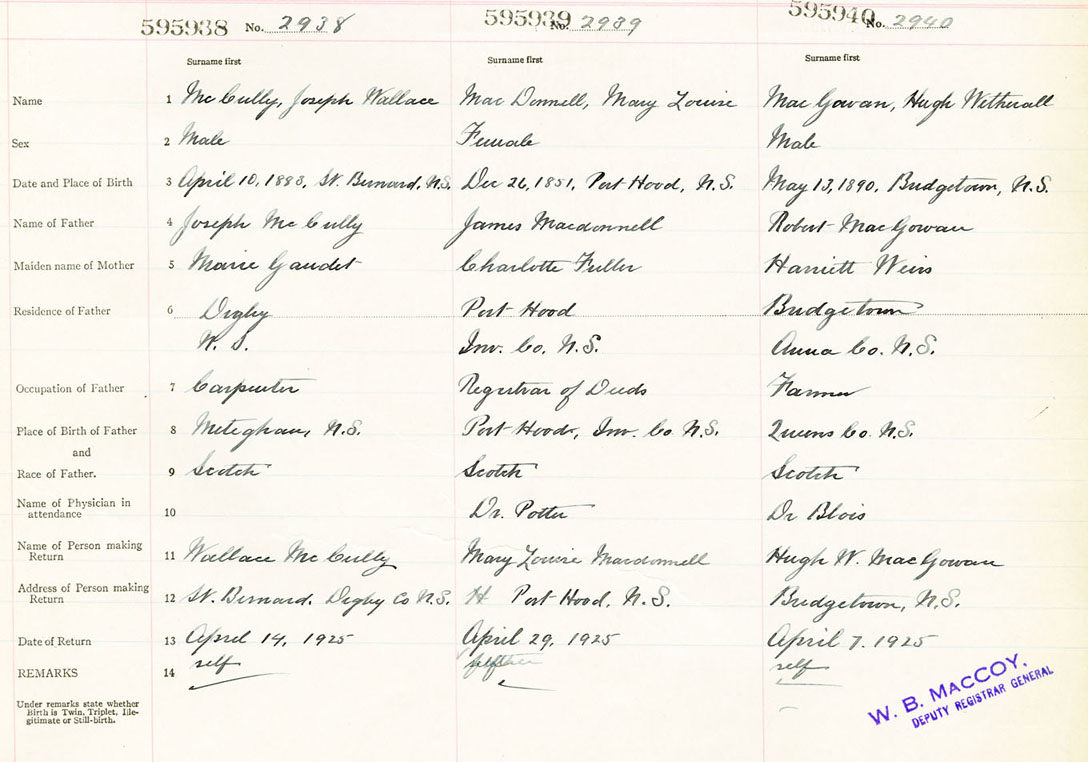 595938 No. 2938 595939 No. 2939 595940 No. 2940
Surname first Surname first Surname first
Name 1 McCully, Joseph Wallace MacDonnell, Mary Louise MacGowan, Hugh Witherall
Sex 2 Male Female Male
Date and Place of Birth 3 April 10, 1898, St. Bernard, N.S. Dec 26, 1851, Port Hood, N.S. May 13, 1890, Bridgetown, N.S.
Name of Father 4 Joseph McCully James Macdonnell Robert MacGowan
Maiden name of Mother 5 Marie Gaudet Charlotte Fuller Harriett Weirs
Residence of Father 6 Digby Port Hood Bridgetown
N. S. Inv. Co. N.S. Anna Co. N.S.
Occupation of Father 7 Carpenter Registrar of Deeds Farmer
Place of Birth of Father 8 Meteghan, N.S. Port Hood, Inv. Co N.S. Queens Co. N.S.
and
Race of Father. 9 Scotch Scotch Scotch
Name of Physician in
attendance 10 Dr. Potter Dr Blois
Name of Person making
Return 11 Wallace McCully Mary Louise Macdonnell Hugh W. MacGowan
Address of Person making
Return 12 St. Bernard. Digby Co N.S. H Port Hood, N.S. Bridgetown, N.S.
Date of Return 13 April 14, 1925 April 29, 1925 April 7. 1925
REMARKS 14 self self
Under remarks state whether
Birth is Twin, Triplet, Ille-
gitimate or Still-birth.
W. B. MacCOY,
DEPUTY REGISTRAR GENERAL